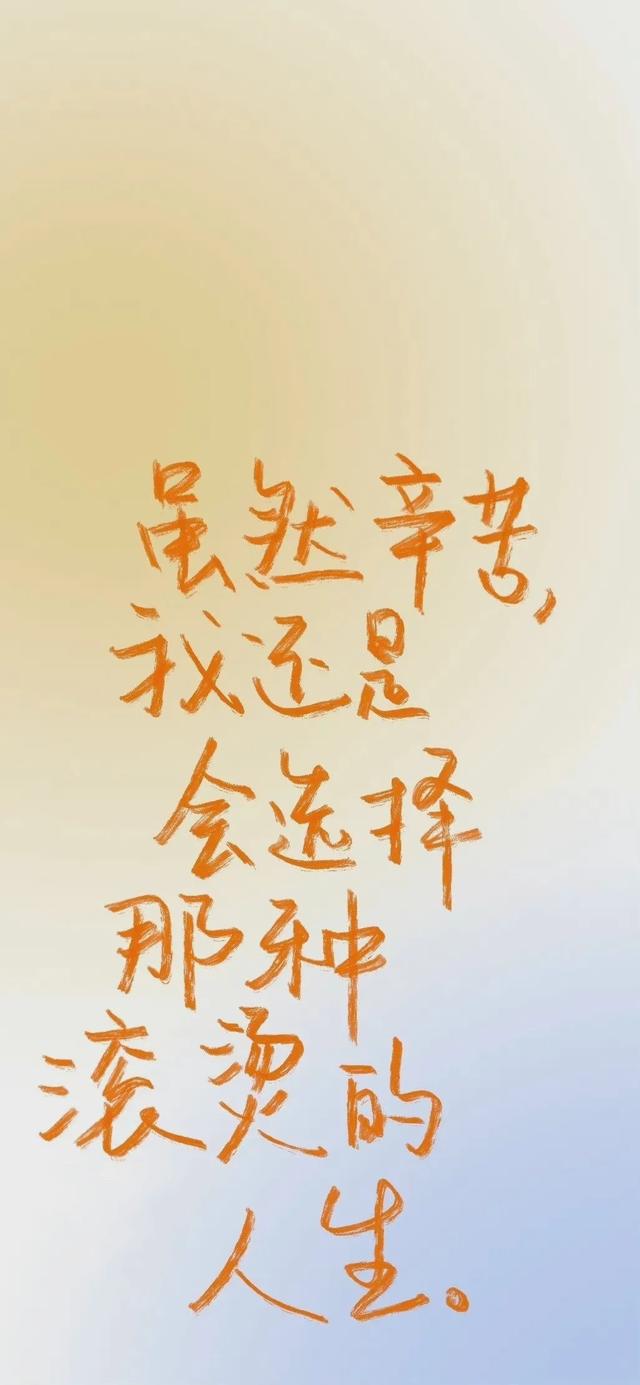 虽然辛苦,
我还是
会选择
那种
滚烫的
人生。